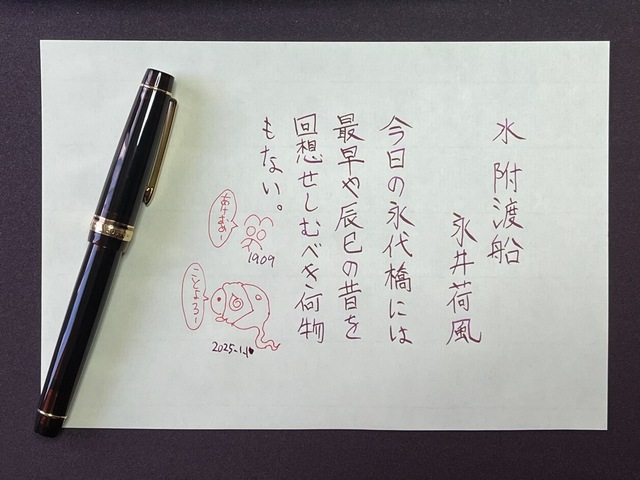 水 附渡船
永井荷風
今日の永代橋には
最早や辰巳の昔を
回想せしむべき何物
もない。
あけおめー
1909
ことよろー
2025.1.10